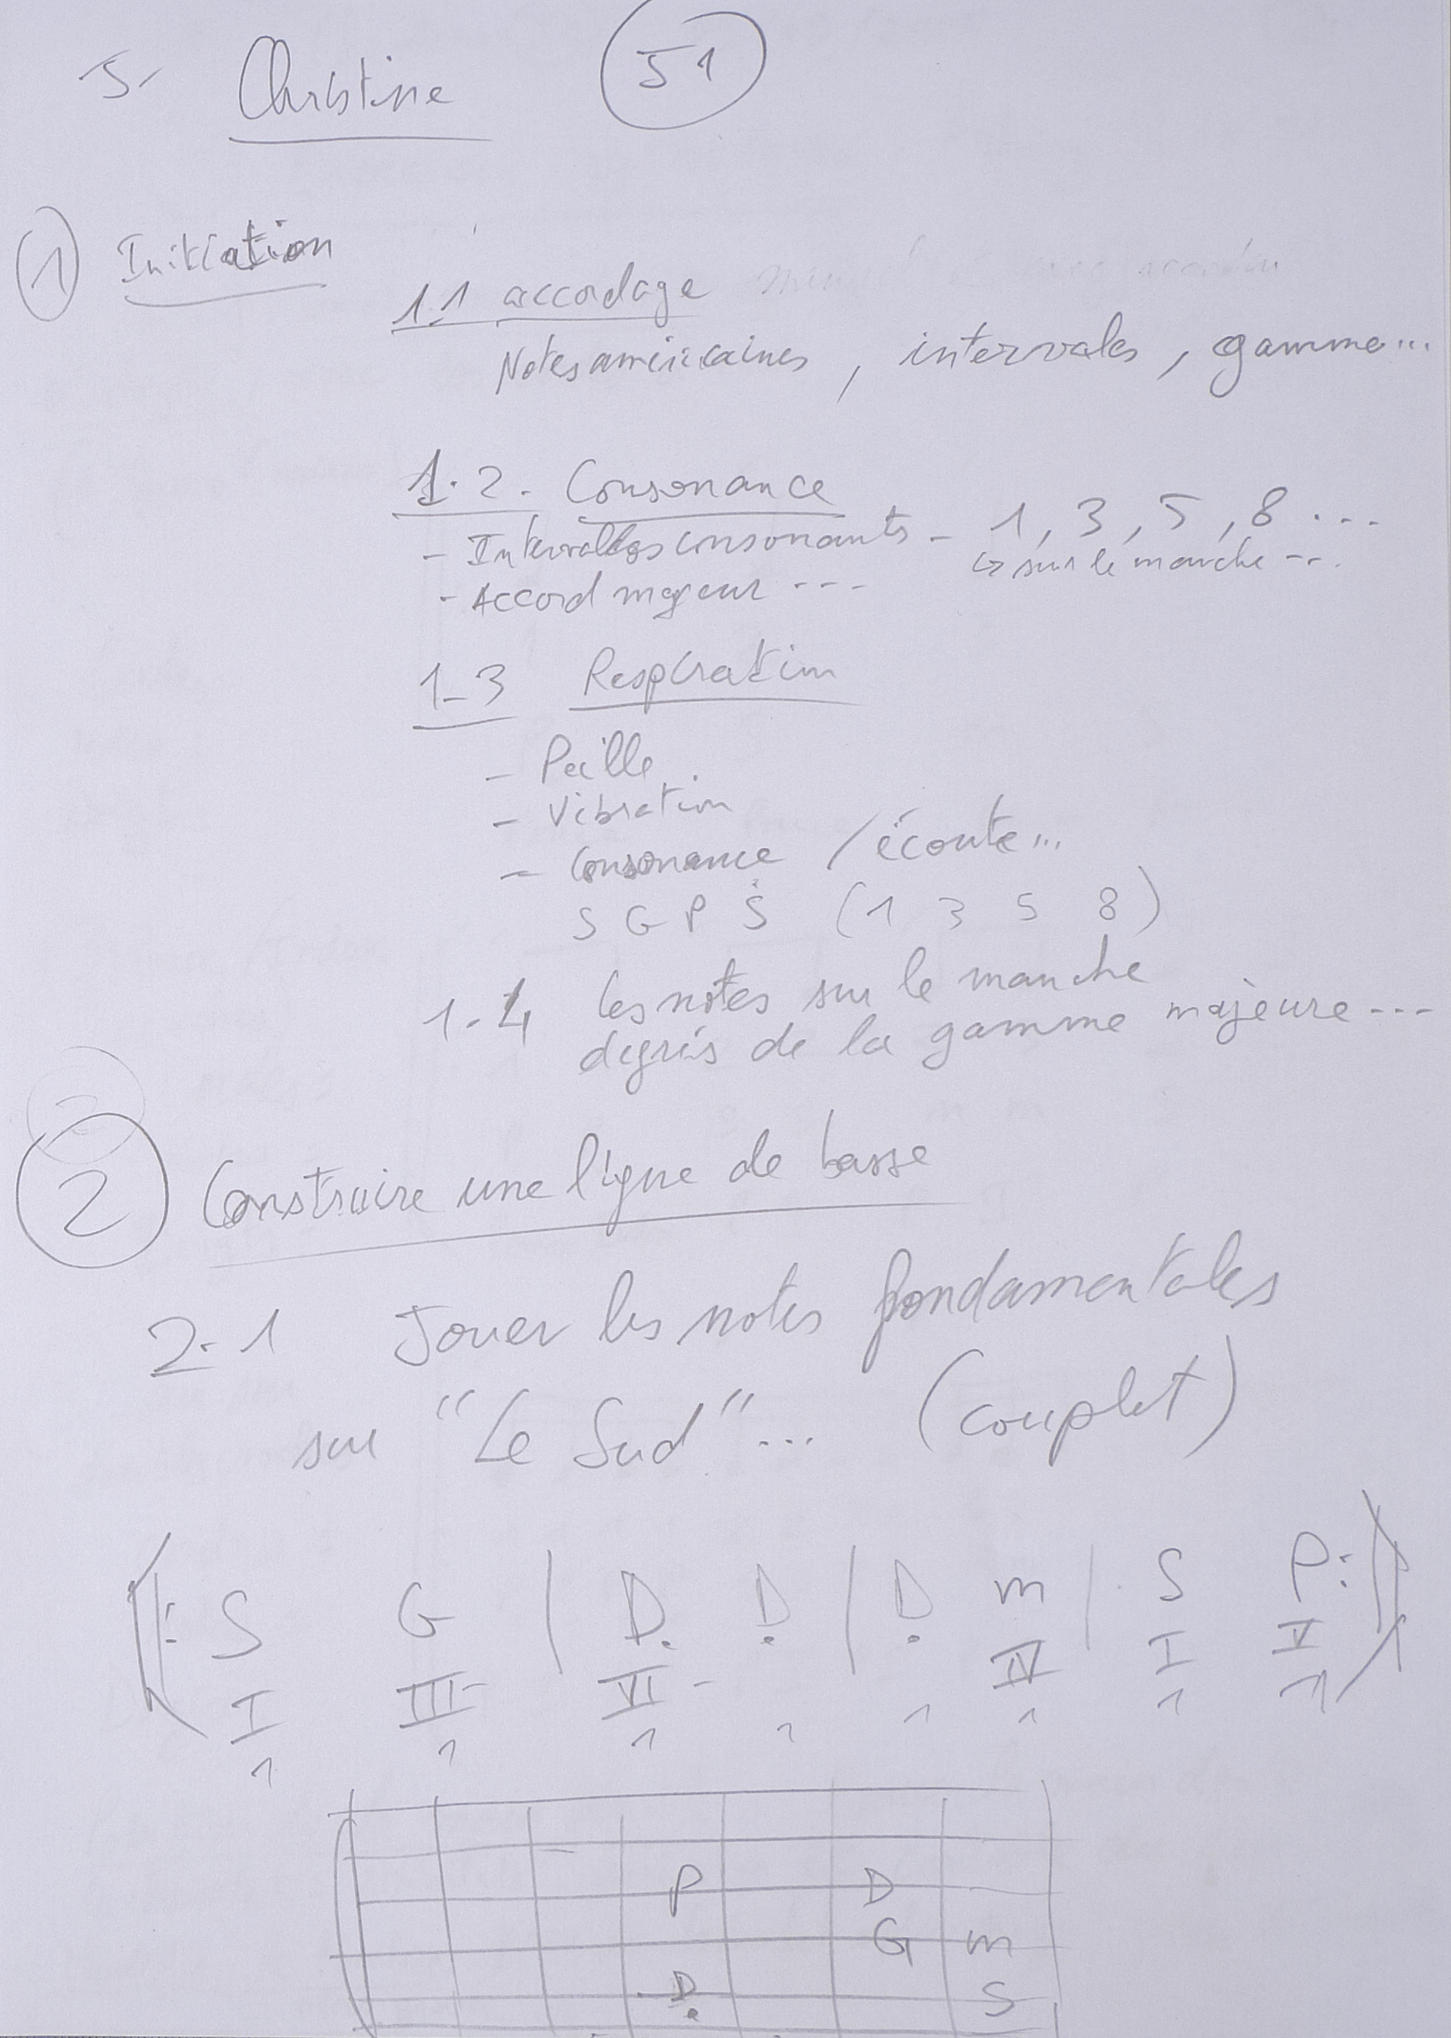 5- Christine 51
1 Initiation
1.1 accordage
Notes américaines, intervales, gamme...
1.2. Consonance
- Intervalles consonants - 1, 3, 5, 8 ...
↳ sur le manche ...
- Accord majeur ...
1-3 Respiration
- Paille
- Vibration
- Consonance / écoute...
S G P Ṡ (1 3 5 8)
1-4 les notes sur le manche
degrés de la gamme majeure ...
2 Construire une ligne de basse
2-1 Jouer les notes fondamentales
sur "Le Sud"... (couplet)
||: S G | Ḍ Ḍ | Ḍ m | S P :||
I III- VI- IV I V
1 1 1 1 1 1 1 1
P D
G m
Ḍ S